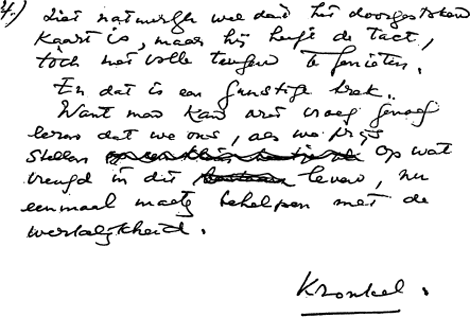 4.) ziet natuurlijk wel dat het doorgestoken
kaart is, maar hij heeft de tact,
tòch met volle teugen te genieten.
En dat is een gunstige trek.
Want men kan niet vroeg genoeg
leren dat we ons, als we prijs
stellen op wat
vreugd in dit leven, nu
eenmaal moet behelpen met de
werkelijkheid.
Kronkel.